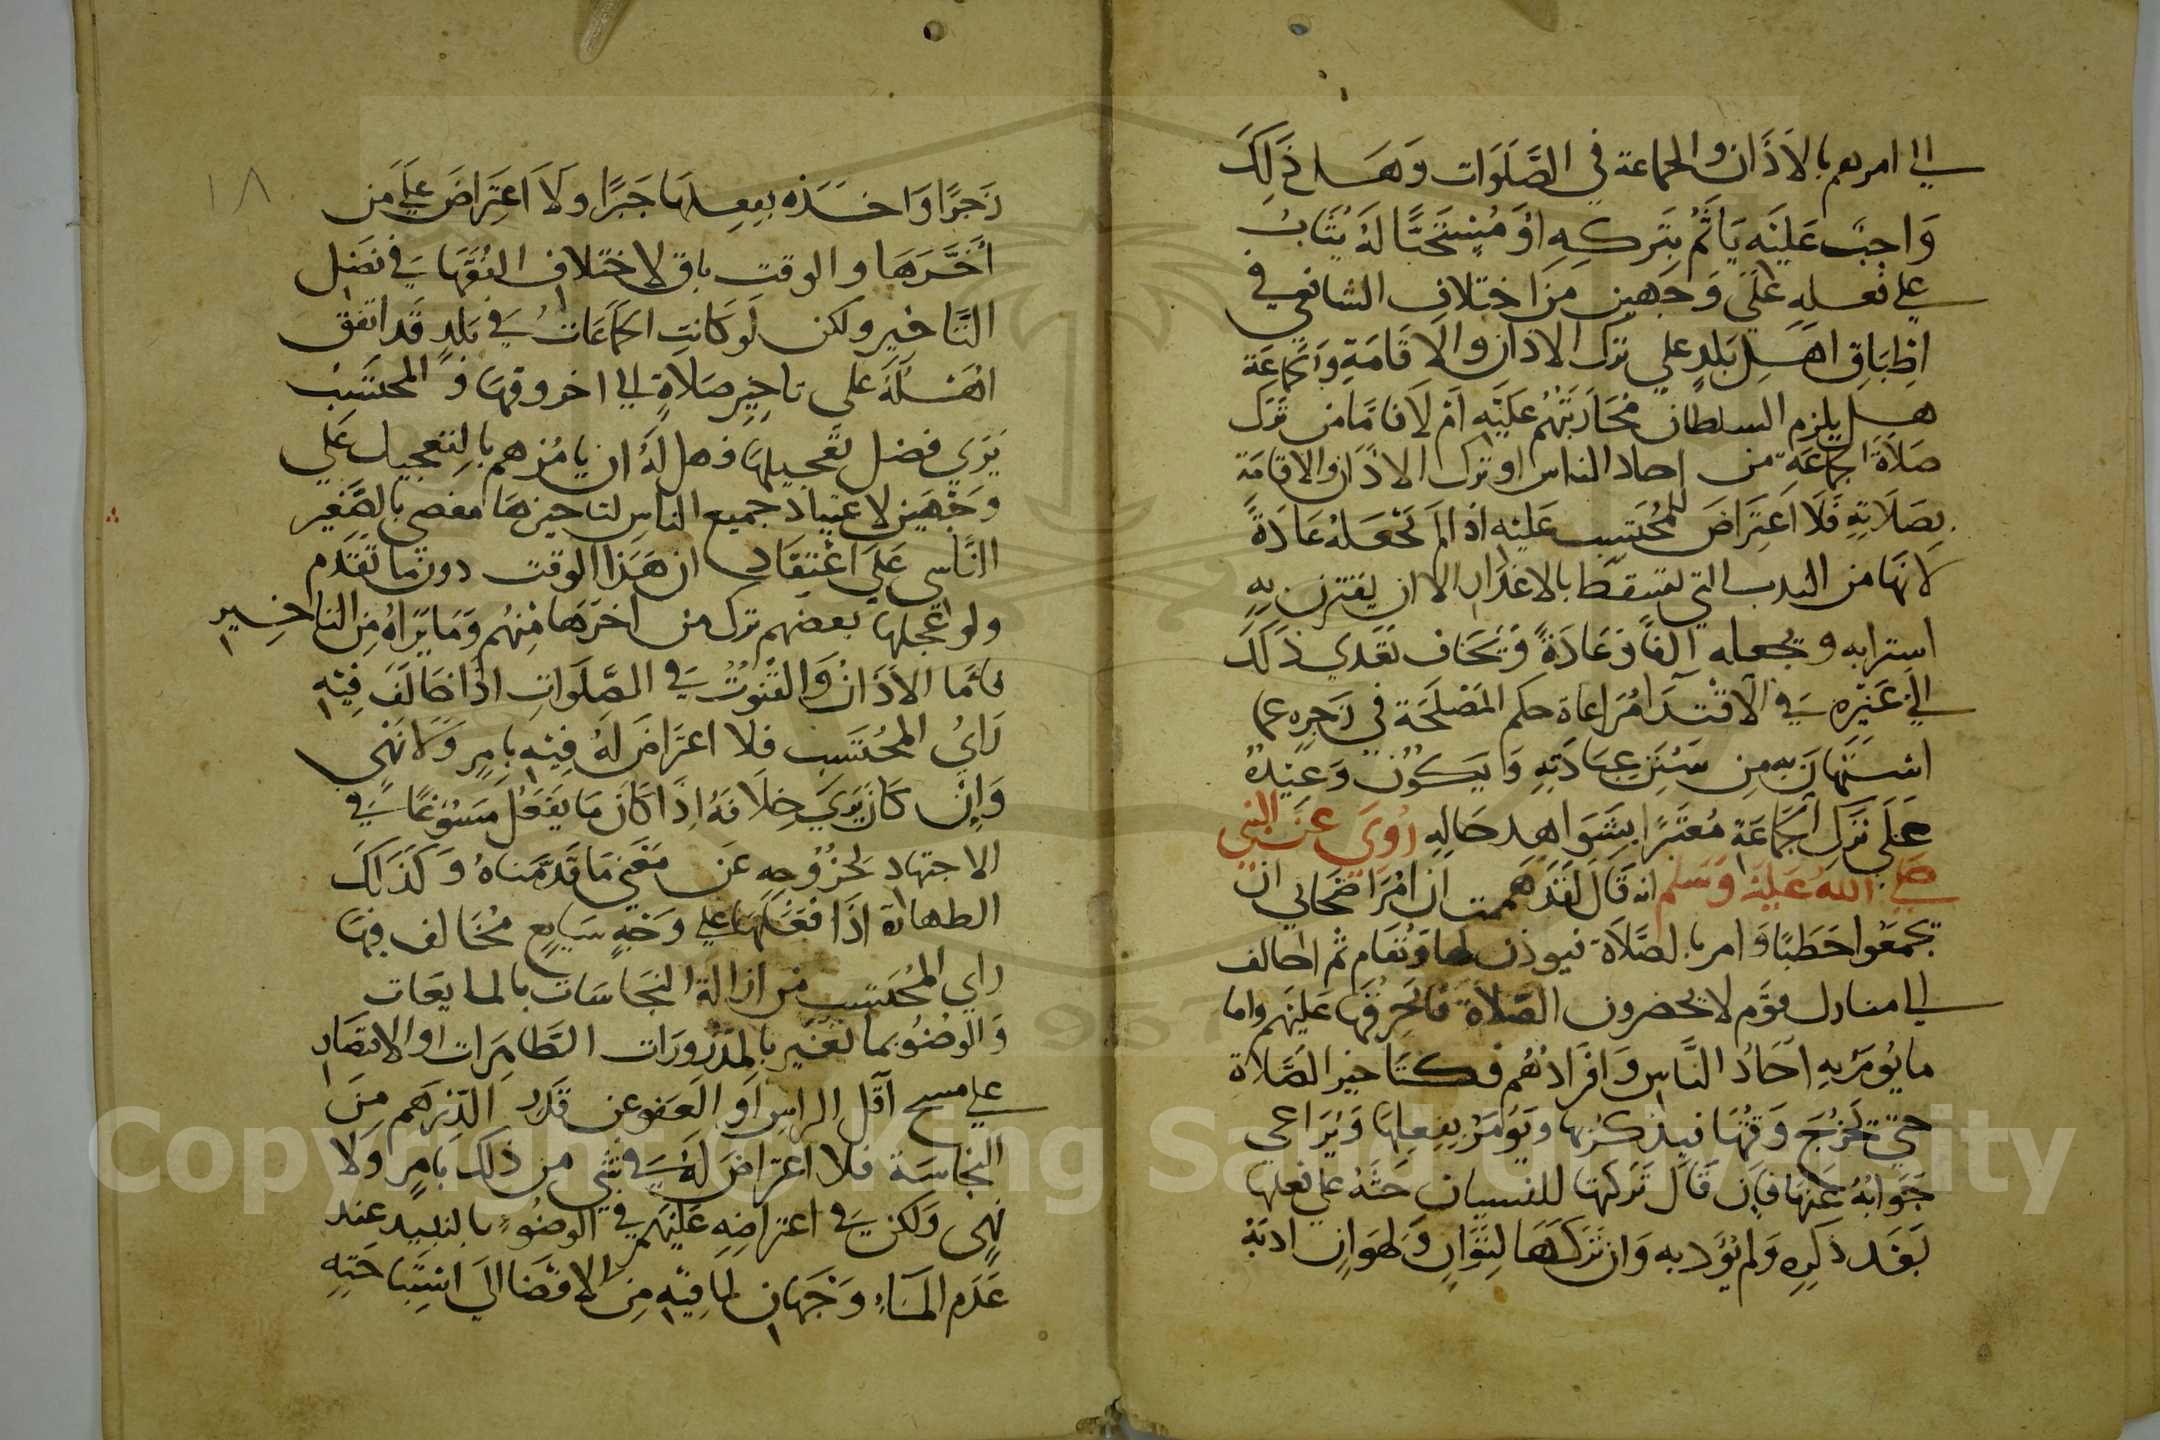 الي امرهم بالاَذَان والجماعة في الصَّلَوَات وَهَل ذَلِكَ
وَاجبٌ عَلَيْه يَاثَمُ بِتَركِهِ اَوْ مُسْتَحَبًّا لَهُ يُثَابُ
علي فعله عَلَي وَجهين مِنَ اختلافِ الشافعي في
اِطْبَاقِ اهَلِ بَلَدٍ علي ترك الاذان والاقَامَةِ وَالجَمَاعَة
هل يلزم السلطان مُحَارَبَتُهُم عَلَيْهِ اَمْ لَا فَامَّا مَن تَرَك
صَلاَةَ الجَمَاعَةِ من احاد الناس او ترك الاذان والاقامَة
بِصَلَاتِهِ فَلَا اَعتِرَاضَ للمُحتَسِبِ عَلَيْه اذا لَم يَجْعَلهُ عَادَةً
لانهَا من الندب التي تسقط بالاعذار الا ان يقترن بهِ
استرابه وَيجعله الفًا وَعَادَةً وَيَخَاف تَعَدي ذَلَكَ
الي غَيْرِهِ في الاقْتِدَا مُرَاعاة حكم المَصْلَحَة في زَجرِهِ عما
اسْتَهَانَ بِهِ مِن سُنَنِ عِبَادَتِهِ وَايَكُونُ وَعيْدهُ
عَلَي تَرَكِ الجَمَاعَةِ مُعتَبَرًا بِشَوَاهِد حَالِهِ رُوِيَ عَن النبي
صَلي اللهُ عَلَيْه وَسَلم انه قَالَ لَقَدَ هَممت ان امُرَ اصْحَابي ان
يجمَعَوا حَطَبًا وَامر بالصَّلاَة فيوذن لها وَتُقَام ثم اخالف
الي منازل قوَم لا يحضرون الصَّلاة فَاحَرِقُهَا عَلَيْهِم واما
ما يُومَرُ بِهِ آحَادُ النَّاسِ وَافْرَادُهُم فَكتَاخيرِ الصَّلاَة
حَتي تَخَرُجَ وَقتُهَا فيذكرُ بها وَيُومَرُ بِفِعلِهَا وَيُرَاعي
جَوَابُهُ عَنْهَا فَاِن قَالَ تَرَكتُهَا للنسيان حَثَّهُ علي فعلها
بَعَد ذَكَرِهِ وَلم يُؤَدبه وَان تَرَكَهَا لِتَوَانٍ وَهَوَانٍ ادبَهُ
زَجرًا وَاخَذَه بِفعلِهَا جَبَرًا وَلاَ اَعتِرَاضَ عَلَي مَن
اَخَّرَهَا والوقت باق لاختلاف الفُقَهَا في فضلِ
التَّاخيرِ ولكن لَو كَانتِ الجَمَاعَات في بَلَدٍ قَد اتفق
اهْلهُ عَلَى تاخيِرِ صَلاَةٍ الي اخر وقتها وَالمحتَسِبُ
يَرَي فضل تَعجيلِهَا فهل لَهُ ان يامُرهم بالتعجيل عَلَي
وَجْهَيِن لاعتياد جميع الناس لتاخيرهَا مفض بالصَّغير
النَّاشي عَلَي اعْتِقَاد ان هَذَا الوقت دون مَا تَقَدم
ولو عجلها بَعضهم ترك من اخرَهَا مِنْهُم وَمَا يَرَاهُ مِن التاخير
فَامَّا الاَذَانُ وَالقُنوُتُ في الصَّلَوَاتِ اذَا خَالَفَ فِيْهِ
رَايُ المُحْتَسِبِ فلا اعتَرَاضَ لَهُ فِيْهِ بِامرٍ وَلا نَهْيٍ
وَاِن كَانَ يَرَي خِلَافَهُ اِذَا كَانَ مَا يَفَعَلُ مَسُوّغًا في
الاجتهاد لخرُوُجِهِ عَن مَعَني مَا قَدَّمَناهُ وَكَذَلكَ
الطهارة اذَا فَعَلَهَا علي وَجْهٍ سَايِغٍ مُخَالف فِيْهَا
راي المُحتَسِب من ازالةِ النَجَاسَات بالمايعَات
وَالوضُوُ بما تغير بالمذرُورَات الطَّاهِرَات او الاقتصَار
علي مسح آقَل الراسِ اَو الَعَفو عن قَدرِ الدِّرهَمِ مِنَ
النجاسَة فلا اعتراضَ لَهُ في شيٍ من ذلَك بامرٍ وَلا
نهي وَلكن في اعتراضِهِ عَلَيْهِم في الوضُوءِ بالنبيد عِند
عَدَمِ الْمَاءِ وَجْهَانِ لمَا فِيْهِ مِن الافضَا اليَ استِبَاحَتِهِ
١٨
Copyright © King Saud University
1957